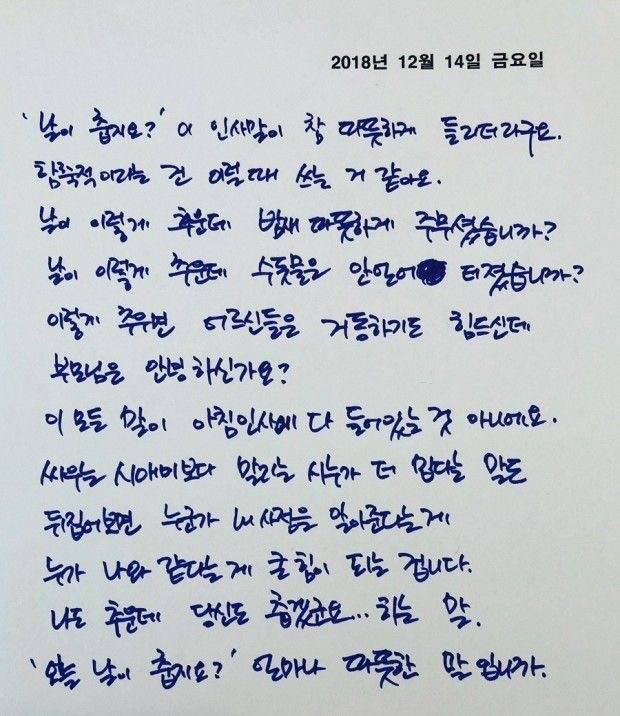 2018년 12월 14일 금요일
'날이 춥지요?' 이 인사말이 참 따뜻하게 들리더라구요.
함축적이라는 건 이럴 때 쓰는 거 같아요.
날이 이렇게 추운데 밤새 따뜻하게 주무셨습니까?
날이 이렇게 추운데 수돗물은 안얼어 터졌습니까?
이렇게 추우면 어르신들은 거동하기도 힘드신데
부모님은 안녕하신가요?
이 모든 말이 아침인사에 다 들어있는 것 아니에요.
싸우는 시애미보다 말리는 시누가 더 밉다는 말도
뒤집어보면 누군가 내 사정을 알아준다는게
누가 나와 같다는게 큰 힘이 되는 겁니다.
나도 추운데 당신도 춥겠군요... 하는 말.
'오늘 날이 춥지요?' 얼마나 따뜻한 말입니까.